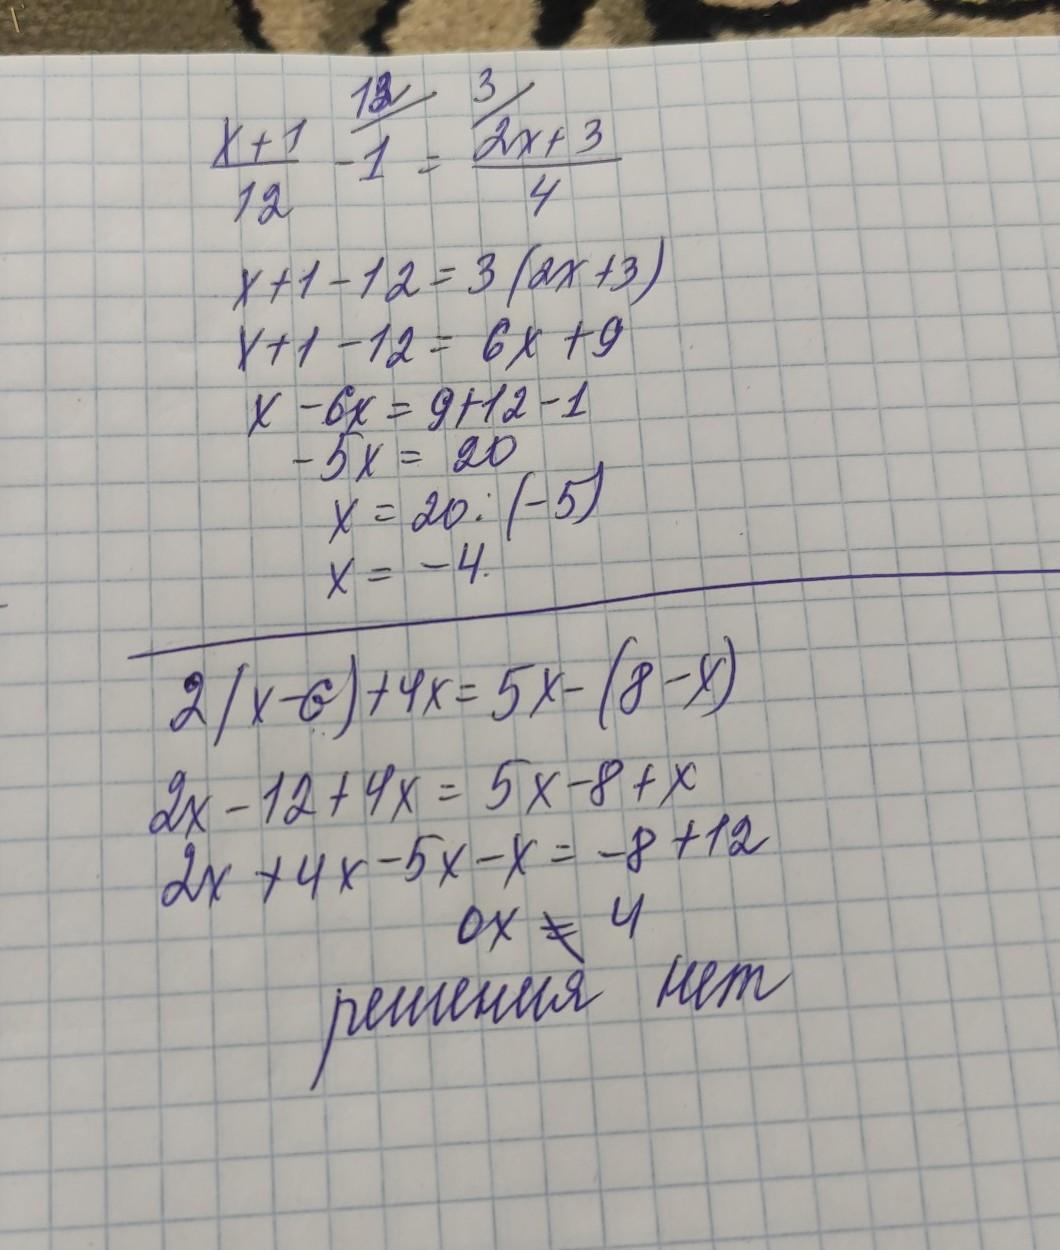 12 3
x+1 - 1 = 2x+3
12 4
x+1-12=3(2x+3)
x+1-12= 6x+9
x-6x=9+12-1
-5x= 20
x=20:(-5)
x= -4.
2(x-6)+4x=5x-(8-x)
2x-12+4x= 5x-8+x
2x+4x-5x-x= -8+12
0x ≠ 4
решения нет